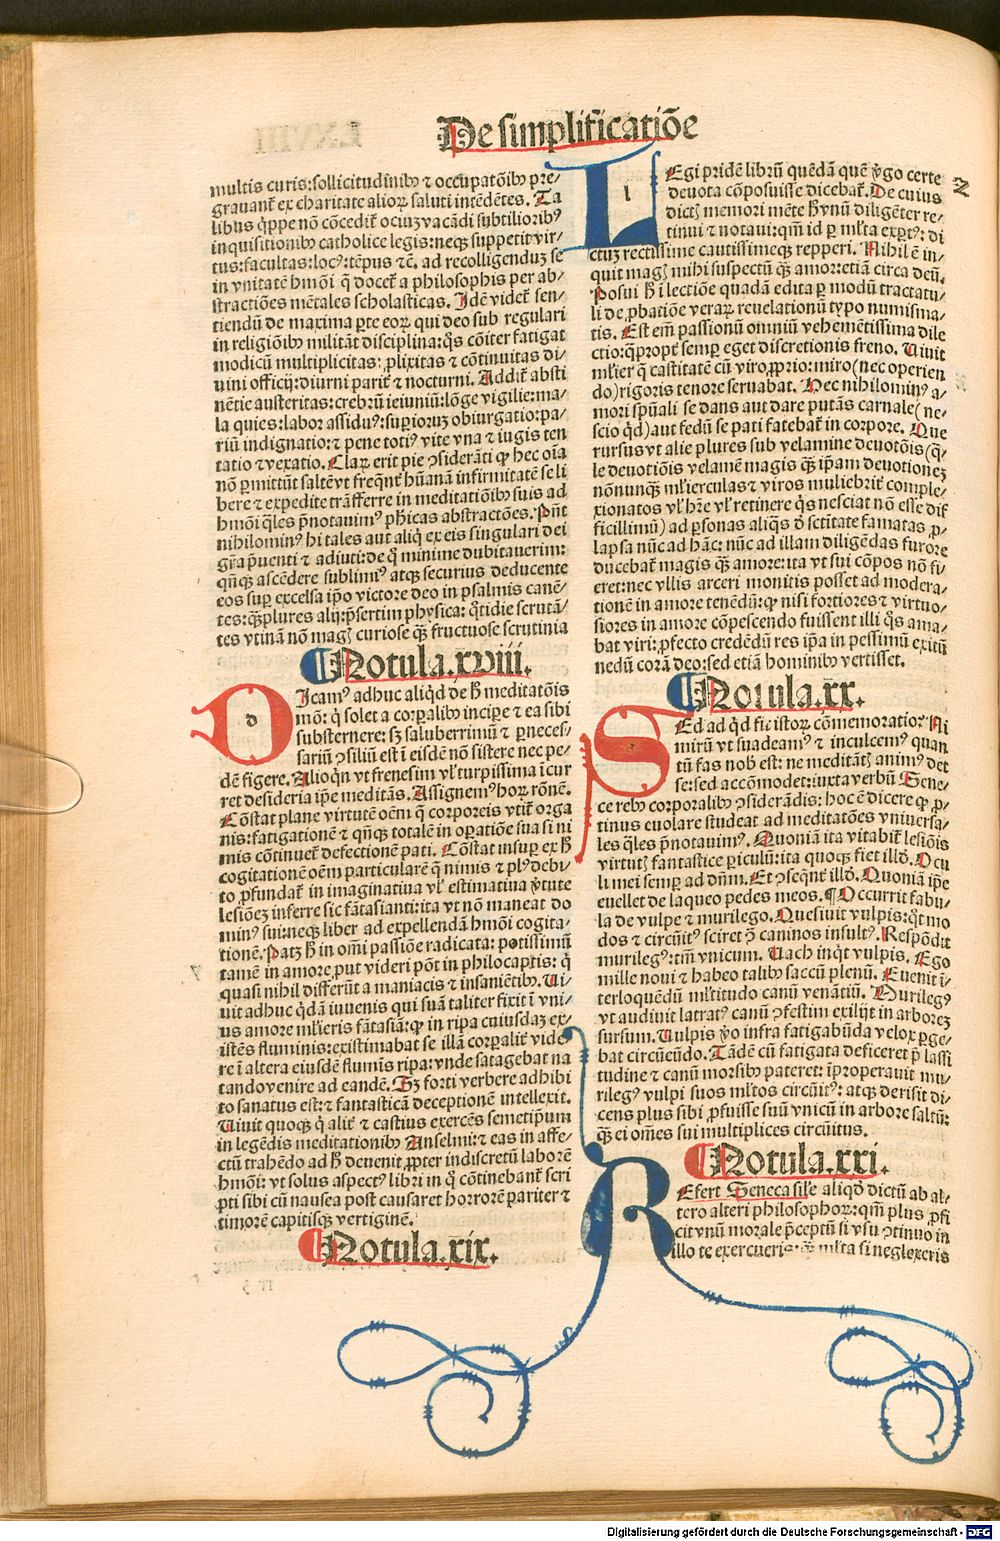 De simplificatiōe
multis curis: sollicitudinibꝰ ⁊ occupatōibꝰ pre-
grauant̄ ex charitate alioꝝ saluti intēdētes. Ta
libus q̄ppe nō cōcedit̄ ociuꝫ vacādi subtilioribꝰ
inquisitionibꝰ catholice legis: neqꝫ suppetit vir-
tus: facultas: locꝰ: tēpus ⁊c̄. ad recolligenduꝫ se
in vnitatē hmōi q̄ docet̄ a philosophis per ab-
stractiōes mētales scholasticas. Idē videt̄ sen-
tiendū de maxima ꝑte eoꝝ qui deo sub regulari
in religiōibꝰ militāt disciplina: q̄s cōiter fatigat
modicū multiplicitas: ꝓlixitas ⁊ cōtinuitas di-
uini officij: diurni parit̄ ⁊ nocturni. Addit̄ absti
nētie austeritas: crebrū ieiuniū: lōge vigilie: ma-
la quies: labor assiduꝰ: suꝑioruꝫ obiurgatio: pa-
riū indignatio: ⁊ pene totiꝰ vite vna ⁊ iugis ten
tatio ⁊ vexatio. Claꝝ erit pie ꝯsiderāti ꝙ hec oīa
nō ꝑmittūt saltē vt freq̄nt̄ hūanā infirmitatē se li
bere ⁊ expedite trāsferre in meditatiōibꝰ suis ad
hmōi q̄les p̄notauimꝰ ph̄icas abstractōes. Pn̄t
nihilominꝰ hi tales aut aliq̄ ex eis singulari dei
gr̄a p̄uenti ⁊ adiuti: de q̄ minime dubitauerim:
qn̄qꝫ ascēdere sublimiꝰ atqꝫ securius deducente
eos suꝑ excelsa ip̄o victore deo in psalmis canē-
tes: q̄ꝫ plures alij: p̄sertim physica: q̄tidie scrutā-
tes vtinā nō magꝭ curiose q̄ꝫ fructuose scrutinia
¶Notula.xviii.
D
d
Icamꝰ adhuc aliq̄d de h̄ meditatōis
mō: q̄ solet a corꝑalibꝰ inciꝑe ⁊ ea sibi
substernere: sꝫ saluberrimū ⁊ ꝑneces-
sariū ꝯsiliū est ī eisdē nō sistere nec pe-
dē figere. Alioq̄n vt frenesim vl̓ turpissima icur
ret desideria ip̄e meditās. Assignemꝰ hoꝝ rōnē.
Cōstat plane virtutē oēm q̄ corporeis vtit̄ orga
nis: fatigationē ⁊ qn̄qꝫ totalē in oꝑatiōe sua si ni
mis cōtinuet̄ defectionē pati. Cōstat insuꝑ ex h̄
cogitationē oēm particularē q̄ nimis ⁊ plꝰ debi-
to ꝓfundat̄ in imaginatiua vl̓ estimatiua ꝟtute
lesiōeꝫ inferre sic fātasianti: ita vt nō maneat do
minꝰ sui: neqꝫ liber ad expellendā hmōi cogita-
tionē. Patꝫ h̄ in om̄i passiōe radicata: potissimū
tamē in amore, put videri pōt in philocaptis: q̄
quasi nihil differūt a maniacis ⁊ insaniētibꝰ. Ui-
uit adhuc q̄dā iuuenis qui suā taliter fixit ī vni-
us amore ml̓ieris fātasiā: ꝙ in ripa cuiusdaꝫ ex-
istēs fluminis: existimabat se illā corꝑalit̄ vide-
re ī altera eiusdē flumīs ripa: vnde satagebat na
tando venire ad eandē. Sꝫ forti verbere adhibi
to sanatus est: ⁊ fantasticā deceptionē intellexit.
Uiuit quoqꝫ q̄ alit̄ ⁊ castius exercēs semetip̄um
in legēdis meditationibꝰ Anselmi: ⁊ eas in affe-
ctū trahēdo ad h̄ deuenit ꝓpter indiscretū laborē
hmōi: vt solus aspectꝰ libri in q̄ cōtinebant̄ scri
pti sibi cū nausea post causaret horrorē pariter ⁊
timorē capitisqꝫ vertiginē.
¶Notula.xix.
L
l
Egi pridē librū quēdā quē ꝟgo certe
deuota cōposuisse dicebat̄. De cuius
dictꝭ memori mēte h̄ vnū diligēter re-
tinui ⁊ notaui: qm̄ id ꝑ ml̓ta exꝑtꝰ: di
ctuꝫ rectissime cautissimeqꝫ repperi. Nihil ē in-
quit magꝭ mihi suspectū q̄ꝫ amor: etiā circa deū.
Posui h̄ i lectiōe quadā edita ꝑ modū tractatu-
li de ꝓbatiōe veraꝝ reuelationū typo numisma-
tis. Est em̄ passionū omniū vehemētissima dile
ctio: q̄propt̄ semꝑ eget discretionis freno. Uiuit
ml̓ier q̄ castitatē cū viro, ꝓprio: miro (nec operien
do) rigoris tenore seruabat. Hec nihilominꝰ a-
mori spūali se dans aut dare putās carnale (ne-
scio q̄d) aut fedū se pati fatebat̄ in corpore. Que
rursus vt alie plures sub velamine deuotōis (q̄-
le deuotiōis velamē magis q̄ꝫ ip̄am deuotioneꝫ
nōnunqꝫ ml̓ierculas ⁊ viros muliebrit̄ comple-
xionatos vl̓ hr̄e vl̓ retinere q̄s nesciat nō esse dif
ficillimū) ad ꝑsonas aliq̄s ꝺ sctītate famatas ꝓ-
lapsa nūc ad hāc: nūc ad illam diligēdas furore
ducebat̄ magis q̄ꝫ amore: ita vt sui cōpos nō fi-
eret: nec vllis arceri monitis posset ad modera-
tionē in amore tenēdū: ꝙ nisi fortiores ⁊ virtuo-
siores in amore cōpescendo fuissent illi q̄s ama-
bat viri: ꝓfecto credēdū res ip̄a in pessimū exitū
nedū corā deo: sed etiā hominibꝰ vertisset.
¶Notula.xx.
S
Ed ad q̄d fit istoꝝ cōmemoratio? Ni
mirū vt suadeamꝰ ⁊ inculcemꝰ quan
tū fas nob̄ est: ne meditātꝭ animꝰ det
se: sed accōmodet: iuxta verbū Sene-
ce rebꝰ corporalibꝰ ꝯsiderādis: hoc ē dicere ꝙ ꝓ-
tinus euolare studeat ad meditatōes vniuersa-
les q̄les p̄notauimꝰ. Quoniā ita vitabit̄ lesiōis
virtutꝭ fantastice ꝑiculū: ita quoqꝫ fiet illd̄. Ocu
li mei semꝑ ad dn̄m. Et ꝯseq̄nt̄ illd̄. Quoniā ip̄e
euellet de laqueo pedes meos. ¶Occurrit fabu-
la de vulpe ⁊ murilego. Quesiuit vulpis: q̄t mo
dos ⁊ circūitꝰ sciret ꝓ caninos insultꝰ. Respōdit
murilegꝰ: tm̄ vnicum. Uach inq̄t vulpis. Ego
mille noui ⁊ habeo talibꝰ saccū plenū. Euenit ī-
terloquēdū ml̓titudo canū venātiū. Murilegꝰ
vt audiuit latratꝰ canū ꝯfestim exilijt in arboreꝫ
sursum. Uulpis ꝟo infra fatigabūda velox ꝑge-
bat circūeūdo. Tādē cū fatigata deficeret p̄ lassi
tudine ⁊ canū morsibꝰ pateret: īproperauit mu-
rilegꝰ vulpi suos ml̓tos circūitꝰ: atqꝫ derisit di-
cens plus sibi ꝓfuisse suū vnicū in arbore saltū:
q̄ꝫ ei om̄es sui multiplices circūitus.
¶Notula.xxi.
R
Efert Seneca sil̓e aliqd̄ dictū ab al-
tero alteri philosophoꝝ: qm̄ plus ꝓfi
cit vnū morale p̄ceptū si vsu ꝯtinuo in
illo te exercueris: q̄ꝫ ml̓ta si neglexeris
Digitalisierung gefördert durch die Deutsche Forschungsgemeinschaft - DFG